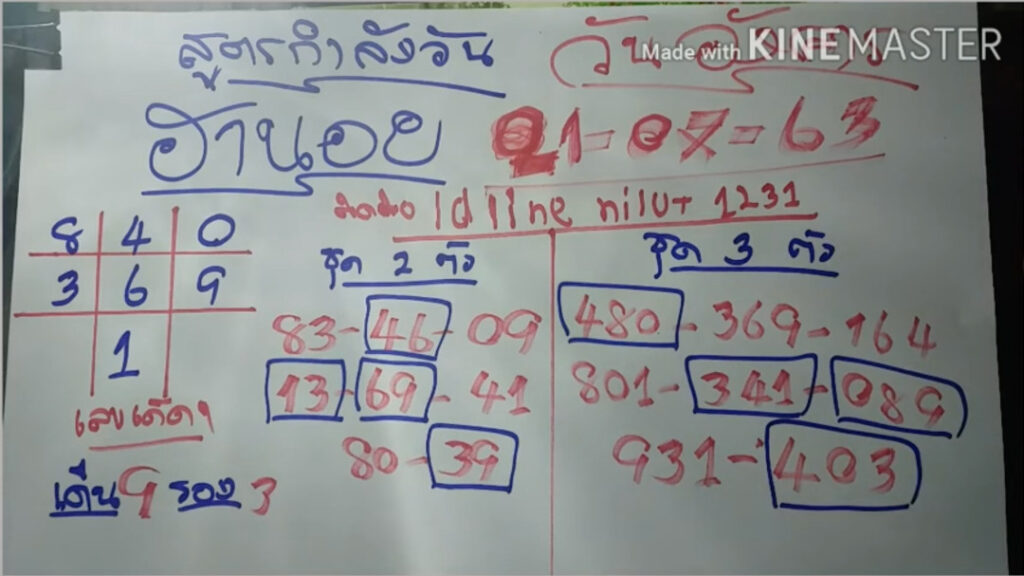 สูตรกำลังวัน วันอังคาร
Made with KINEMASTER
ฮานอย 21-07-63
ติดต่อ Id line nilut 1231
8 4 0
3 6 9
1
เลขเด็ดๆ
เด่น 9 รอง 3
ชุด 2 ตัว
83-46-09
13-69-41
80-39
ชุด 3 ตัว
480-369-164
801-341-089
931-403